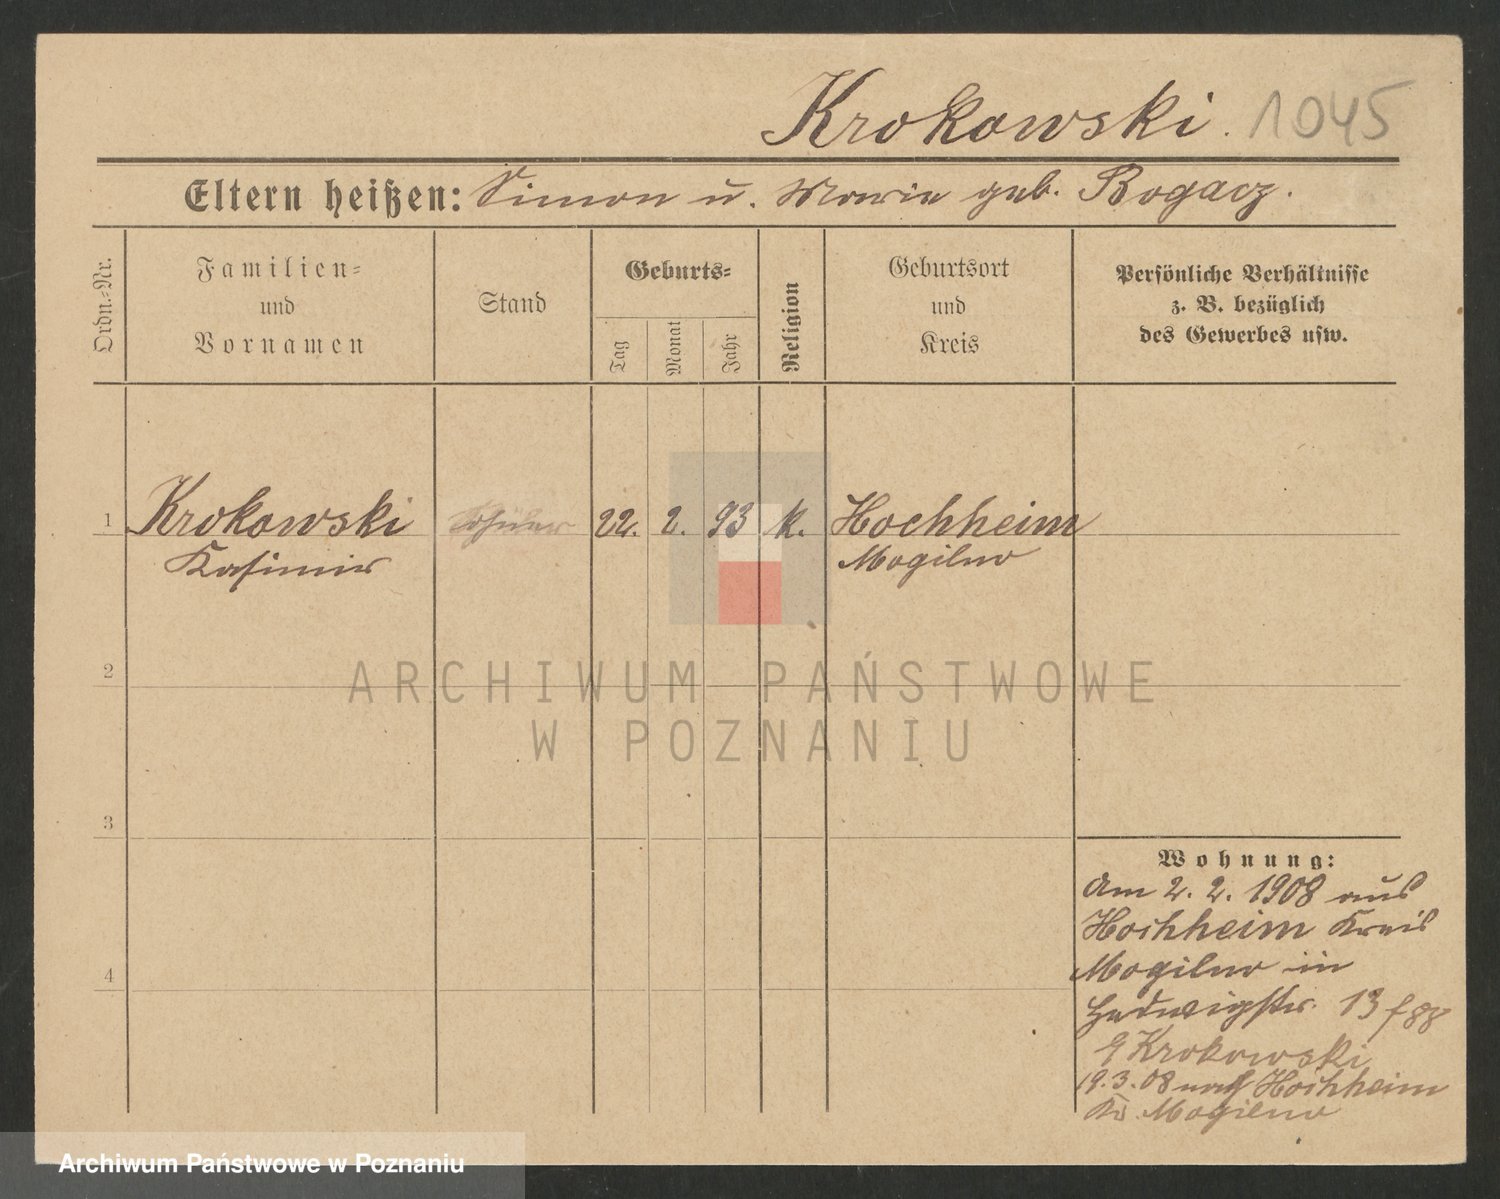 Krokowski. 1045
Eltern heißen: Simon u. Maria geb. Rogacz.
Ordn.-Nr.
Familien-
und
Vornamen
Stand
Geburts-
Tag
Monat
Jahr
Religion
Geburtsort
und
Kreis
Persönliche Verhältnisse
z. B. bezüglich
des Gewerbes usw.
1 Krokowski Schüler 22. 2. 93 k. Hochheim
Kasimir Mogilno
2
3
4
Wohnung:
Am 2. 2. 1908 aus
Hochheim Kreis
Mogilno in
Hedwigstr. 13
Krokowski
19.3.08 nach Hochheim
Kr. Mogilno
ARCHIWUM PAŃSTWOWE
W POZNANIU
Archiwum Państwowe w Poznaniu